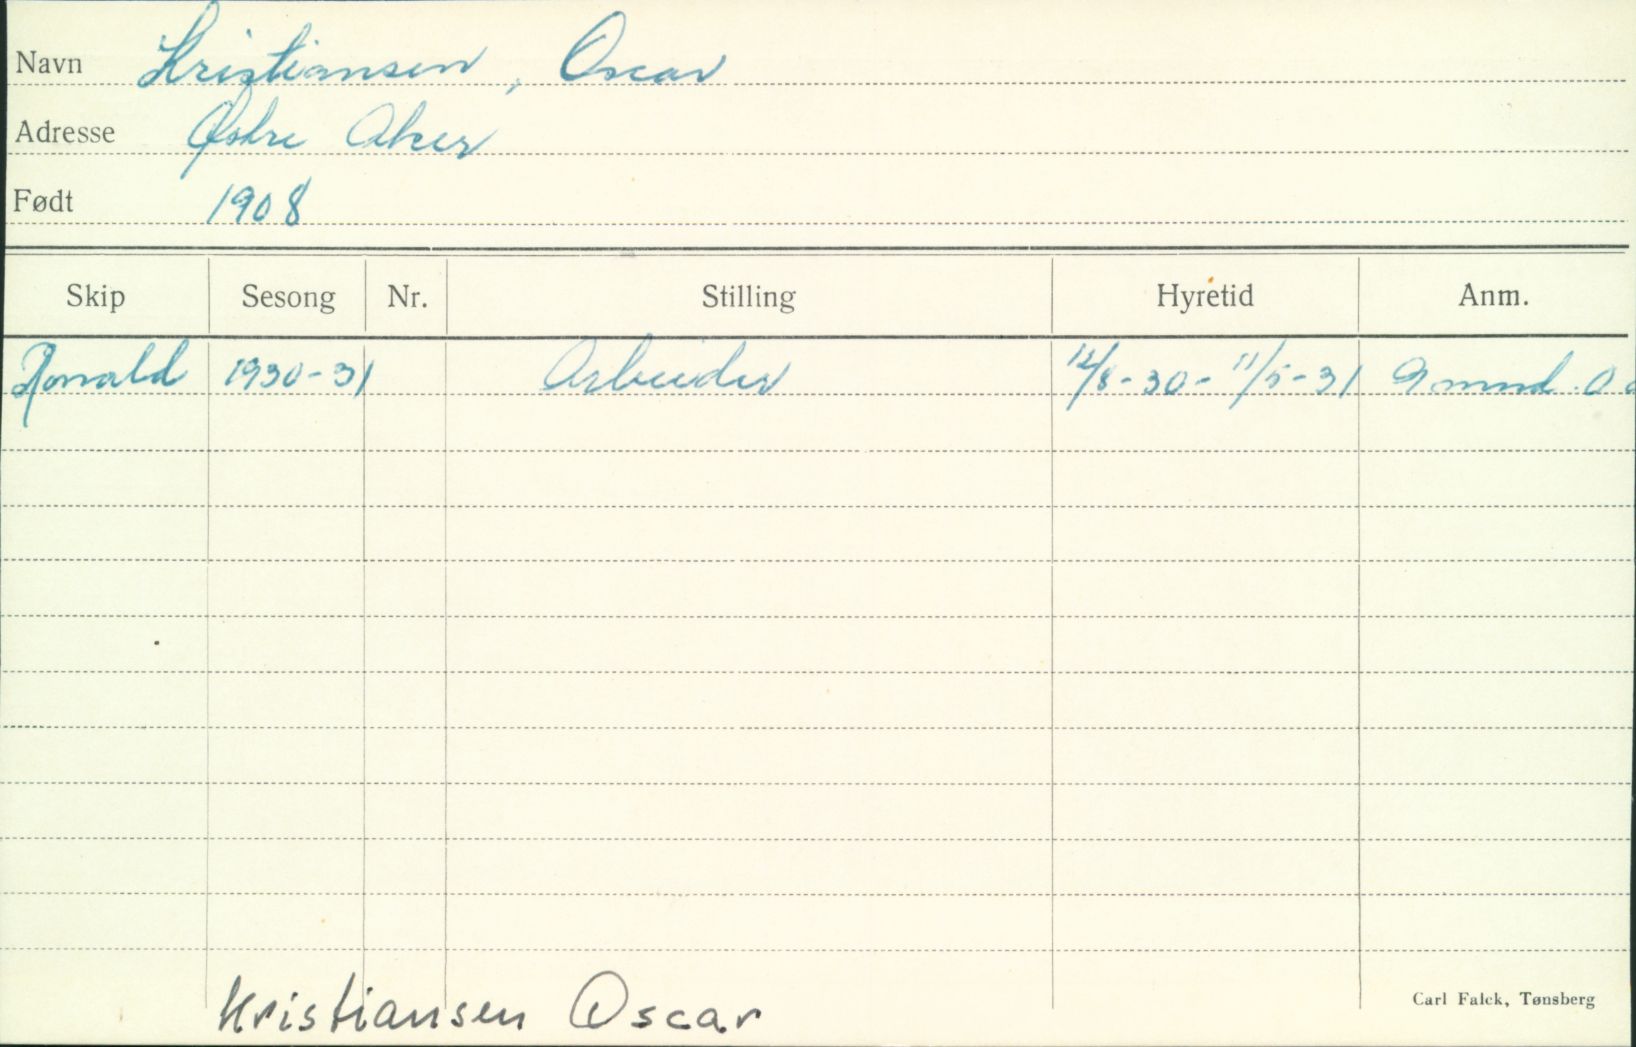 Navn Kristiansen, Oscar
Adresse Østre Aker
Født 1908
Skip Sesong Nr. Stilling Hyretid Anm.
Ronald 1930-31 Arbeider 12/8-30- 11/5-31 9 mnd.
Kristiansen Oscar
Carl Falck, Tønsberg